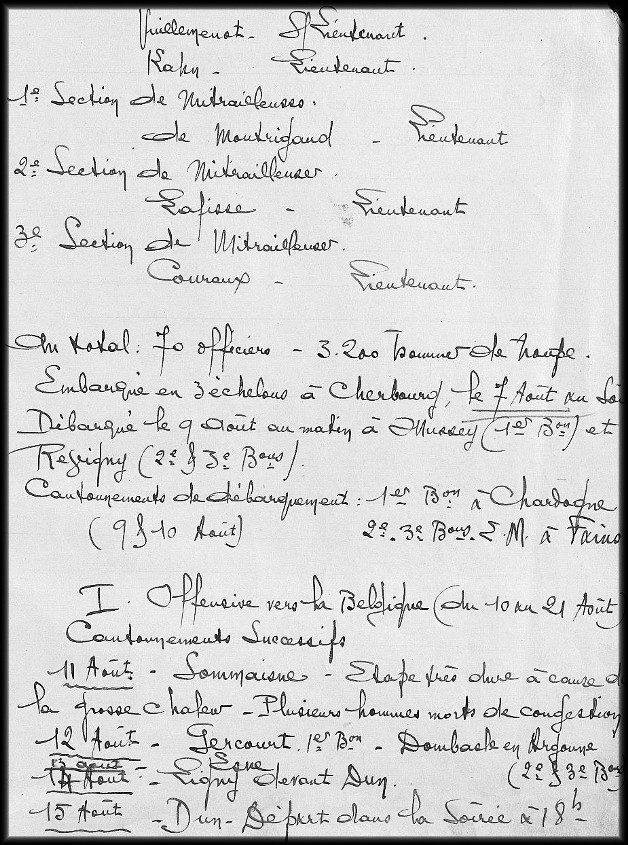 Vuillemenot - S/Lieutenant.
Kahn - Lieutenant.
1e Section de Mitrailleuses.
de Montrigaud - Lieutenant
2e Section de Mitrailleuses.
Lafisse - Lieutenant
3e Section de Mitrailleuses.
Couraux - Lieutenant.
Au total: 70 officiers - 3.200 hommes de troupe.
Embarqué en 3 échelons à Cherbourg, le 7 Août au Soi
Débarqué le 9 août au matin à Mussey (1er Bon) et
Revigny (2e & 3e Bons).
Cantonnements de débarquement: 1er Bon à Chardogne
(9 & 10 Août) 2e. 3e Bons. E.M. à Fains
I. Offensive vers la Belgique (du 10 au 21 Août)
Cantonnements Successifs
11 Août - Sommaisne - Etape très dure à cause d
la grosse chaleur - Plusieurs hommes morts de congestion
12 Août - Gercourt. 1er Bon - Dombasle en Argonne
13 août - Esne (2e & 3e Bons
14 Août - Ligny devant Dun.
15 Août - Dun - Départ dans la Soirée à 18h